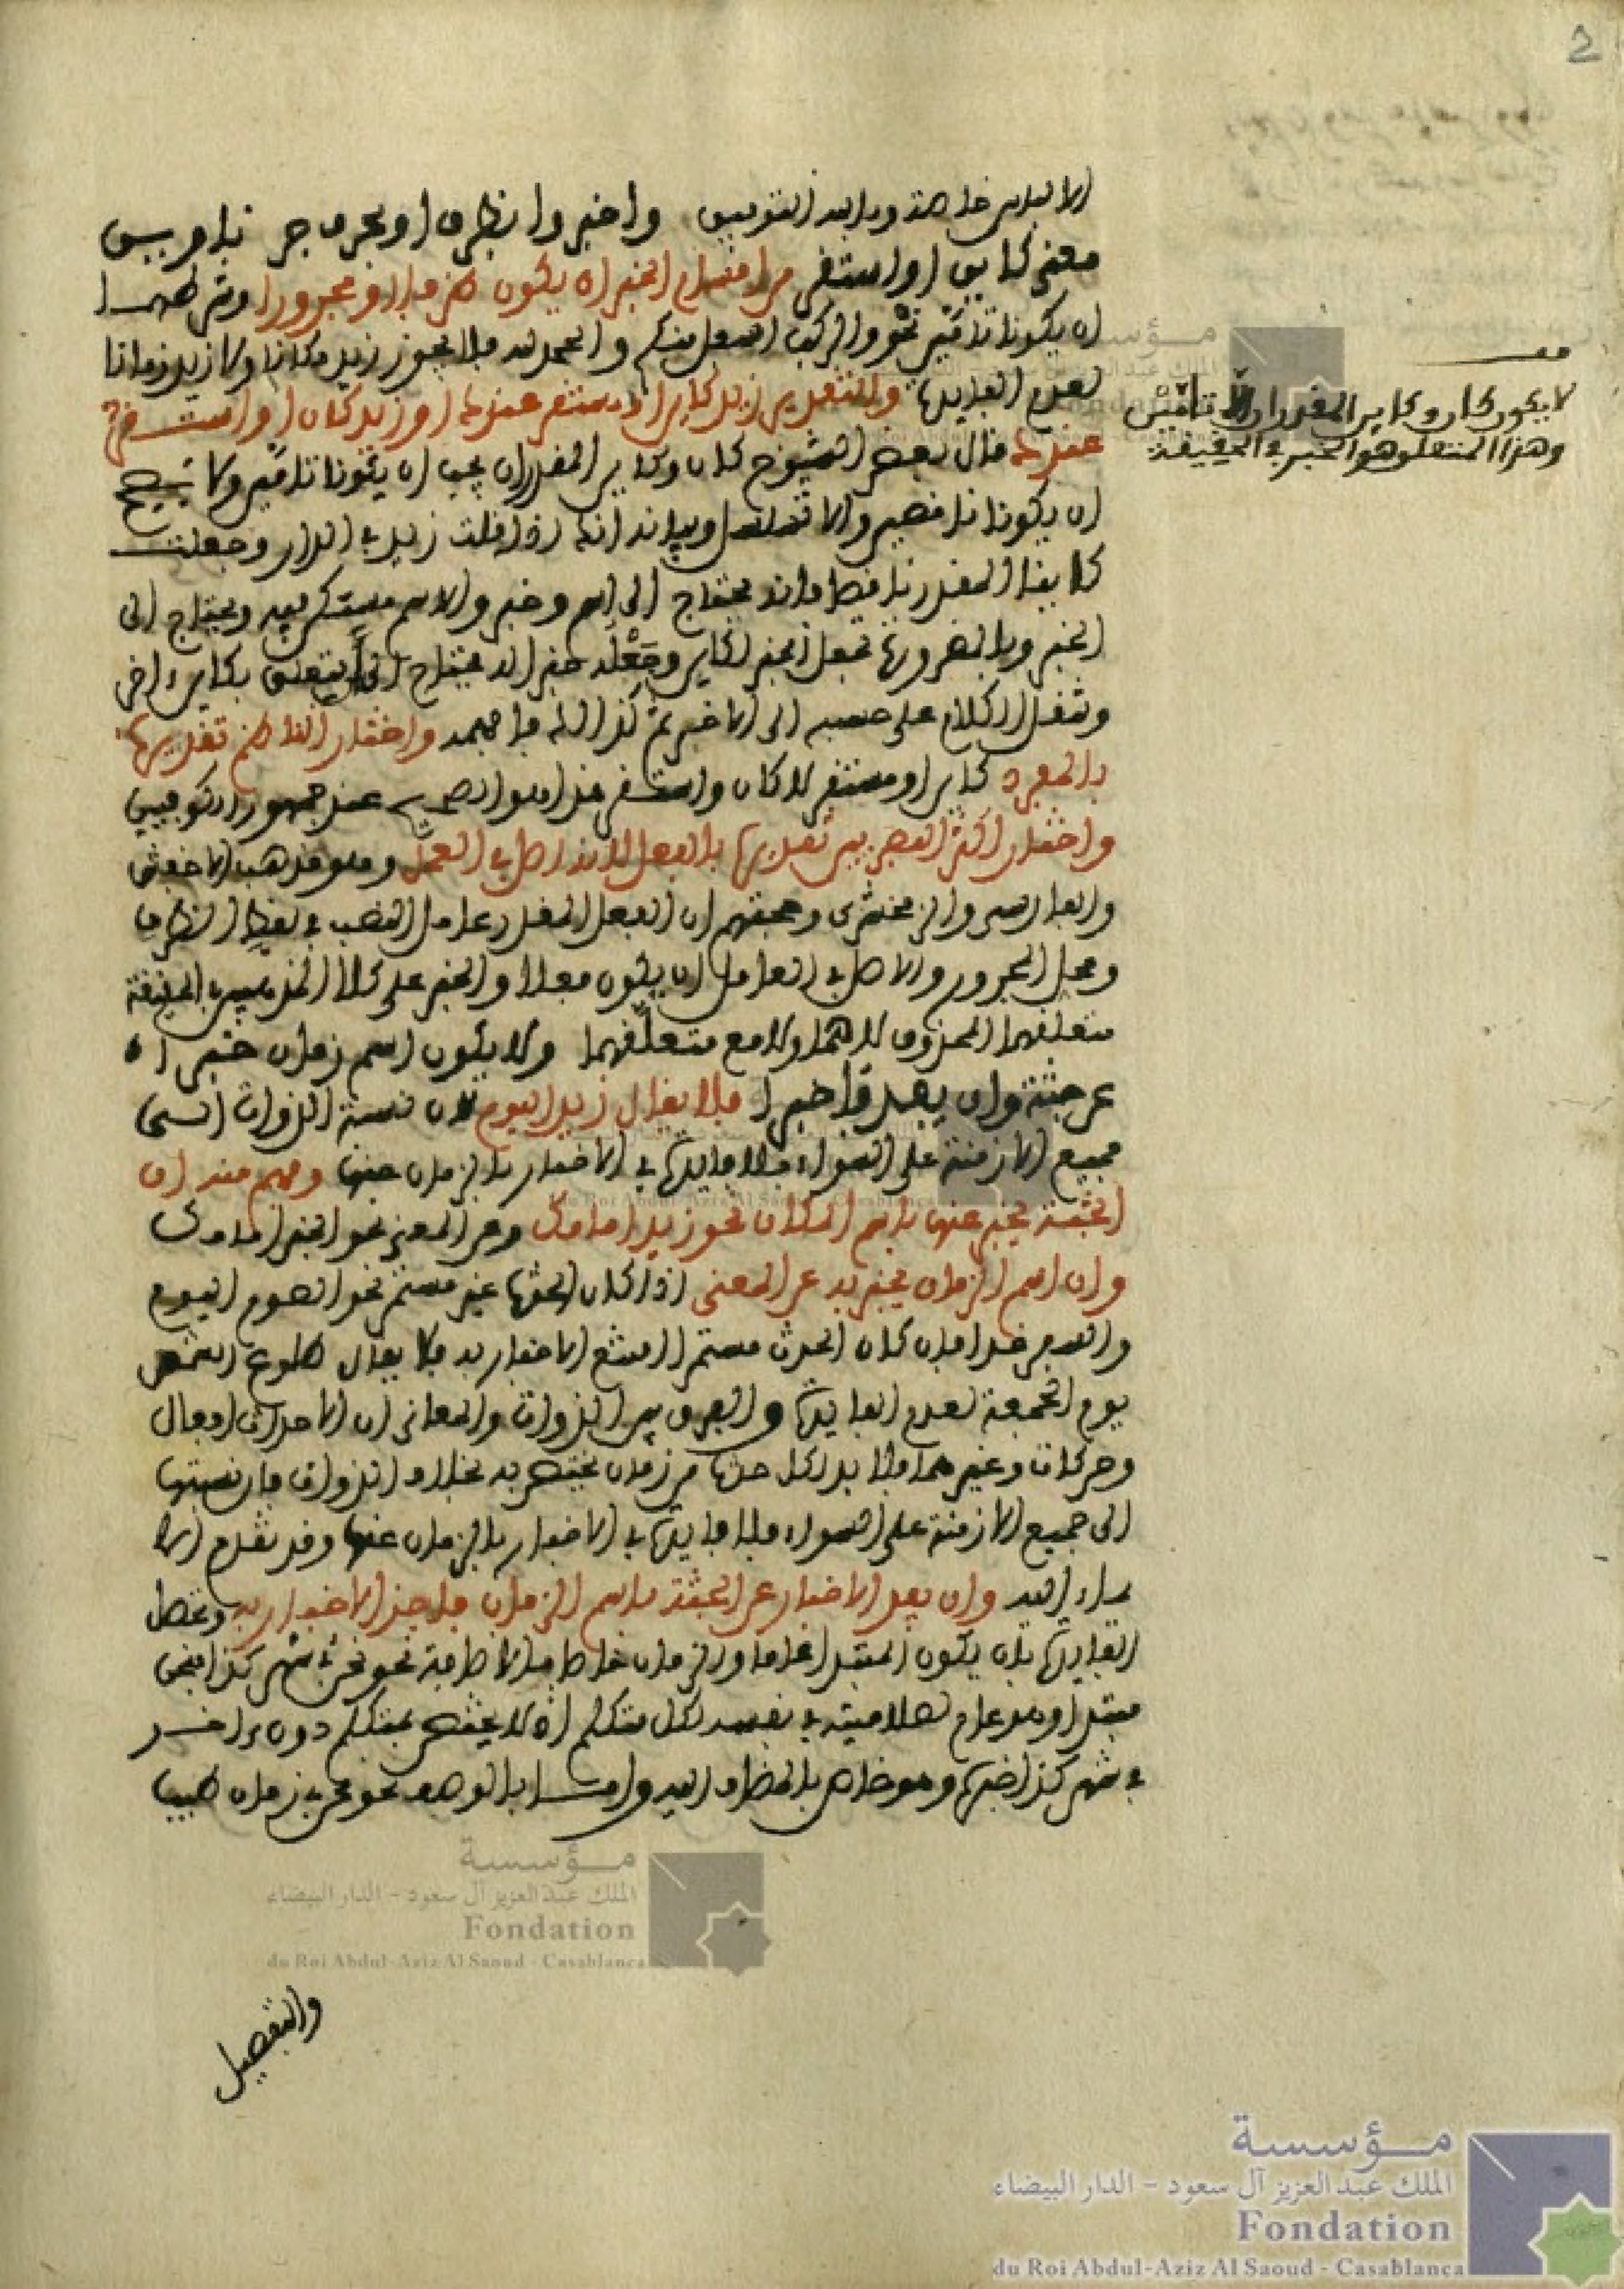 2
الا لبس خاصة وبابه التوفيق وأخبروا بظرف او بحرف جر ناوين
معنى كاين او استقر من اقسام الخبر ان يكون ظرفا او مجرورا وشرطهما
ان يكونا تامين نحو والركب اسفل منكم والحمد لله فلا يجوز زيد مكانا ولا زيد زمانا
لعدم الفايدة والتقدير زيد كاين او مستقر عندك او زيد كان او استقر
عندك قال بعض الشيوخ كان وكاين المقدران يجب ان يكونا تامين ولا يصح
ان يكونا ناقصين والا تسلسل وبيانه انك اذا قلت زيد في الدار وجعلت
كاينا المقدر ناقصا فانه يحتاج الى اسم وخبر والاسم مستتر فيه ويحتاج الى
الخبر وبالضرورة تجعل الخبر لكاين وجعله خبرا له يحتاج الى ان يتعلق بكاين اخر
وتنقل الكلام على حسبه الى الاخر ثم كذالك فافهمه واختار الناظم تقديرها
بالمفرد كاين او مستقر لا كان واستقر هذا هو الصحيح عند جمهور الكوفيين
واختار اكثر البصريين تقديرها بالفعل لانه اصل في العمل وهو مذهب الاخفش
والفارسي والزمخشري وحجتهم ان الفعل المقدر عامل النصب في لفظ الظرف
ومحل المجرور والاصل في العامل ان يكون فعلا والخبر على كلا المذهبين في الحقيقة
متعلقهما المحذوف لا هما ولا مع متعلقهما ولا يكون اسم زمان خبرا
عن جثة وان يفد فأخبرا فلا يقال زيد اليوم لان نسبة الذوات الى
جميع الازمنة على السواء فلا فايدة في الاخبار بالزمان عنها وفهم منه ان
الجثة يخبر عنها باسم المكان نحو زيد امامك وعن المعنى نحو الخير امامك
وان اسم الزمان يخبر به عن المعنى اذا كان الحدث غير مستمر نحو الصوم اليوم
والسفر غدا فان كان الحدث مستمرا امتنع الاخبار به فلا يقال طلوع الشمس
يوم الجمعة لعدم الفايدة والفرق بين الذوات والمعاني ان الاحداث افعال
وحركات وغيرهما فلا بد لكل حدث من زمان يختص به بخلاف الذوات فان نسبتها
الى جميع الازمنة على السواء فلا فايدة في الاخبار بالزمان عنها وقد تقدم الا
يماء اليه وان يفد الاخبار عن الجثة باسم الزمان فاجز الاخبار به وتحصل
الفايدة بان يكون المبتدا عاما والزمان خاصا اما بالاضافة نحو نحن في شهر كذا فنحن
مبتدا وهو عام لصلاحيته في نفسه لكل متكلم اذ لا يختص بمتكلم دون اخر
في شهر كذا خبره وهو خاص بالمضاف اليه واما بالوصف نحو نحن في زمان طيب
والتفصيل
قف
لا يكون كان وكاين المقدران الا تامين
وهذا المتعلق هو الخبر في الحقيقة
مؤسسة
الملك عبد العزيز آل سعود - الدار البيضاء
Fondation
du Roi Abdul-Aziz Al Saoud - Casablanca
مؤسسة
الملك عبد العزيز آل سعود - الدار البيضاء
Fondation
du Roi Abdul-Aziz Al Saoud - Casablanca